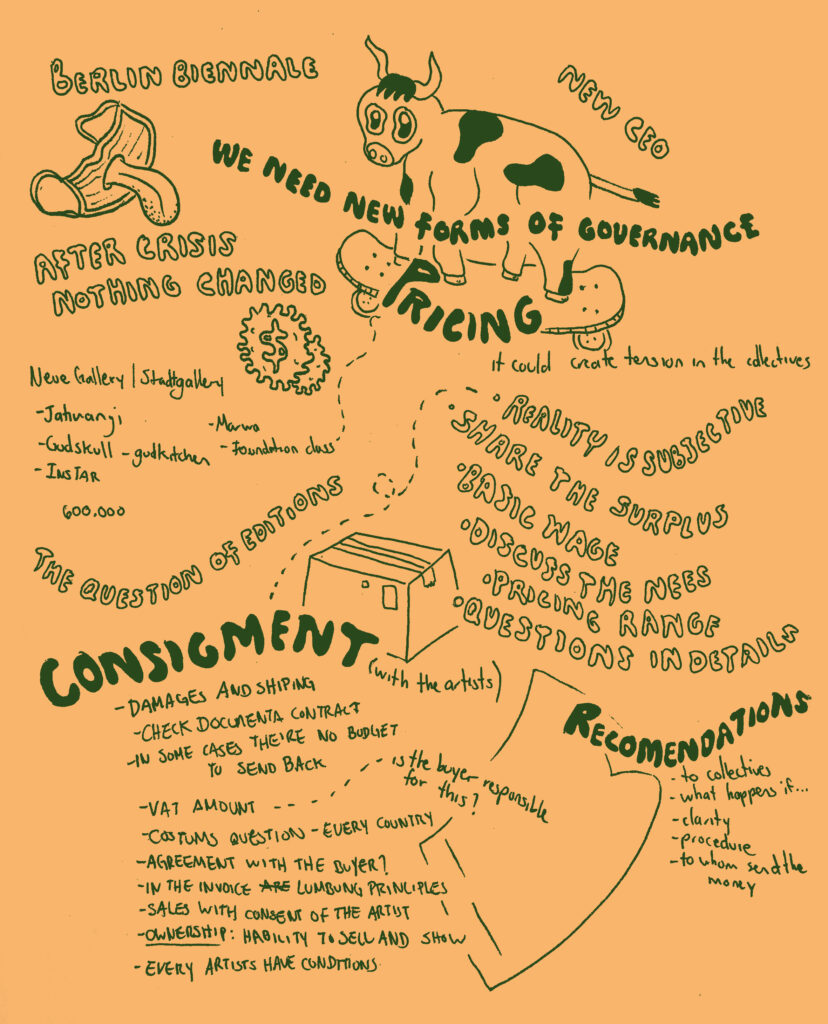 BERLIN BIENNALE
NEW CEO
WE NEED NEW FORMS OF GOVERNANCE
AFTER CRISIS
NOTHING CHANGED
$
PRICING
it could create tension in the collectives
Neue Gallery | Stadtgallery
-Jatiwangi
-Marwa
-Gudskull -gudkitchen
-Foundation class
-INSTAR
600.000
THE QUESTION OF EDITIONS
• REALITY IS SUBJECTIVE
• SHARE THE SURPLUS
• BASIC WAGE
• DISCUSS THE NEES
• PRICING RANGE
• QUESTIONS IN DETAILS
CONSIGMENT (with the artists)
-DAMAGES AND SHIPING
-CHECK DOCUMENTA CONTRACT
-IN SOME CASES THEIRE NO BUDGET
TO SEND BACK
-VAT AMOUNT -- is the buyer responsible
for this?
-COSTUMS QUESTION - EVERY COUNTRY
-AGREEMENT WITH THE BUYER?
-IN THE INVOICE ARE LUMBUNG PRINCIPLES
-SALES WITH CONSENT OF THE ARTIST
-OWNERSHIP: HABILITY TO SELL AND SHOW
-EVERY ARTISTS HAVE CONDITIONS
RECOMENDATIONS
- to collectives
- what happens if...
- clarity
- procedure
- to whom send the
money